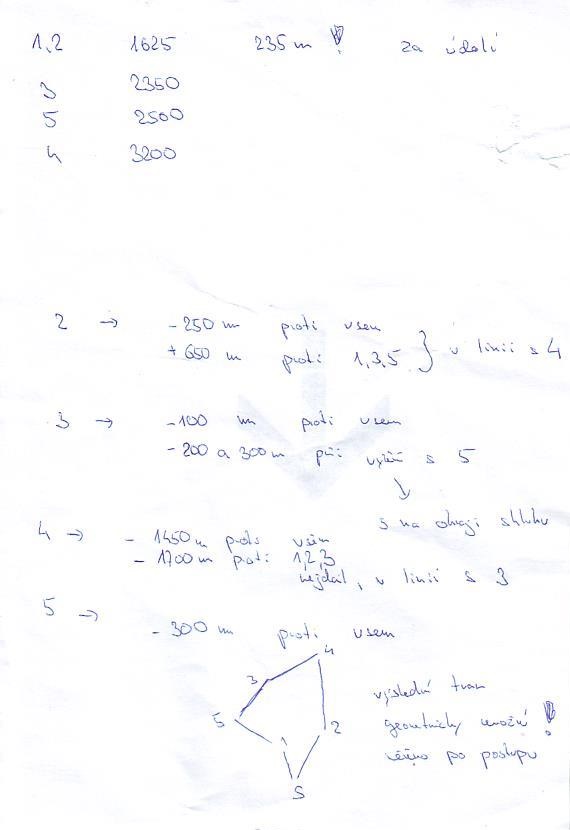 1,2 1625 235 m ! za údolí
3 2350
5 2500
4 3200
2 → - 250 m proti vsem
+ 650 m proti 1,3,5 } v linii s 4
3 → - 100 m proti vsem
- 200 a 300 m při s 5
↘
5 na okraji shluku
4 → - 1450 m proti vsem
- 1700 m proti 1,2,3
nejdál, v linii s 3
5 → - 300 m proti vsem
4
3
5 2
1
S
výslední tvar
geometricky možní !
po postupu